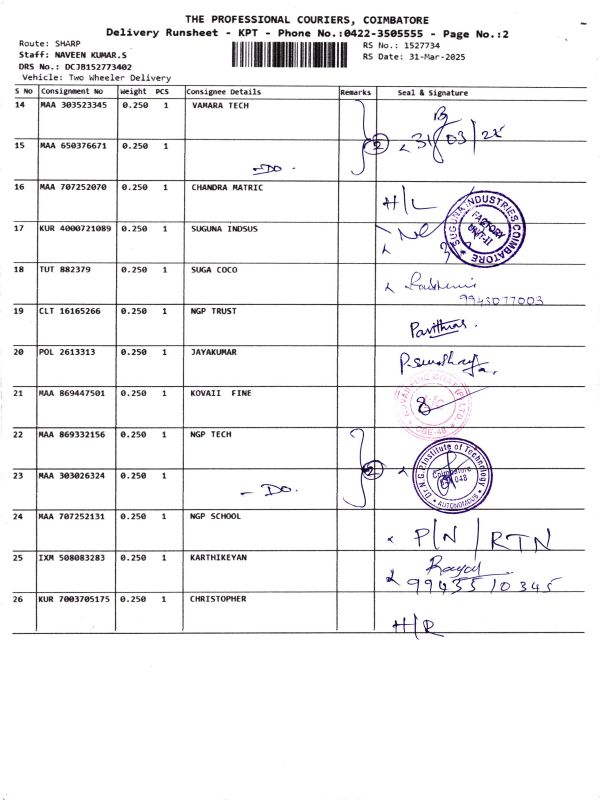 THE PROFESSIONAL COURIERS, COIMBATORE
Delivery Runsheet - KPT - Phone No.:0422-3505555 - Page No.:2
Route: SHARP
Staff: NAVEEN KUMAR.S
DRS No.: DCJB152773402
Vehicle: Two Wheeler Delivery
RS No.: 1527734
RS Date: 31-Mar-2025
S No Consignment No Weight PCS Consignee Details Remarks Seal & Signature
14 MAA 303523345 0.250 1 VAMARA TECH
15 MAA 650376671 0.250 1 -DO- 2 31/03/25
16 MAA 707252070 0.250 1 CHANDRA MATRIC H/L
17 KUR 4000721089 0.250 1 SUGUNA INDSUS
SUGUNA INDUSTRIES COIMBATORE
FACTORY
UNIT-II
18 TUT 882379 0.250 1 SUGA COCO
9943077003
19 CLT 16165266 0.250 1 NGP TRUST
20 POL 2613313 0.250 1 JAYAKUMAR
21 MAA 869447501 0.250 1 KOVAII FINE
CBE-48
22 MAA 869332156 0.250 1 NGP TECH
23 MAA 303026324 0.250 1 - DO. 2
Dr.N.G.P.Institute of Technology
Coimbatore
048
AUTONOMOUS
24 MAA 707252131 0.250 1 NGP SCHOOL P/N / RTN
25 IXM 508083283 0.250 1 KARTHIKEYAN
9943510345
26 KUR 7003705175 0.250 1 CHRISTOPHER H/R